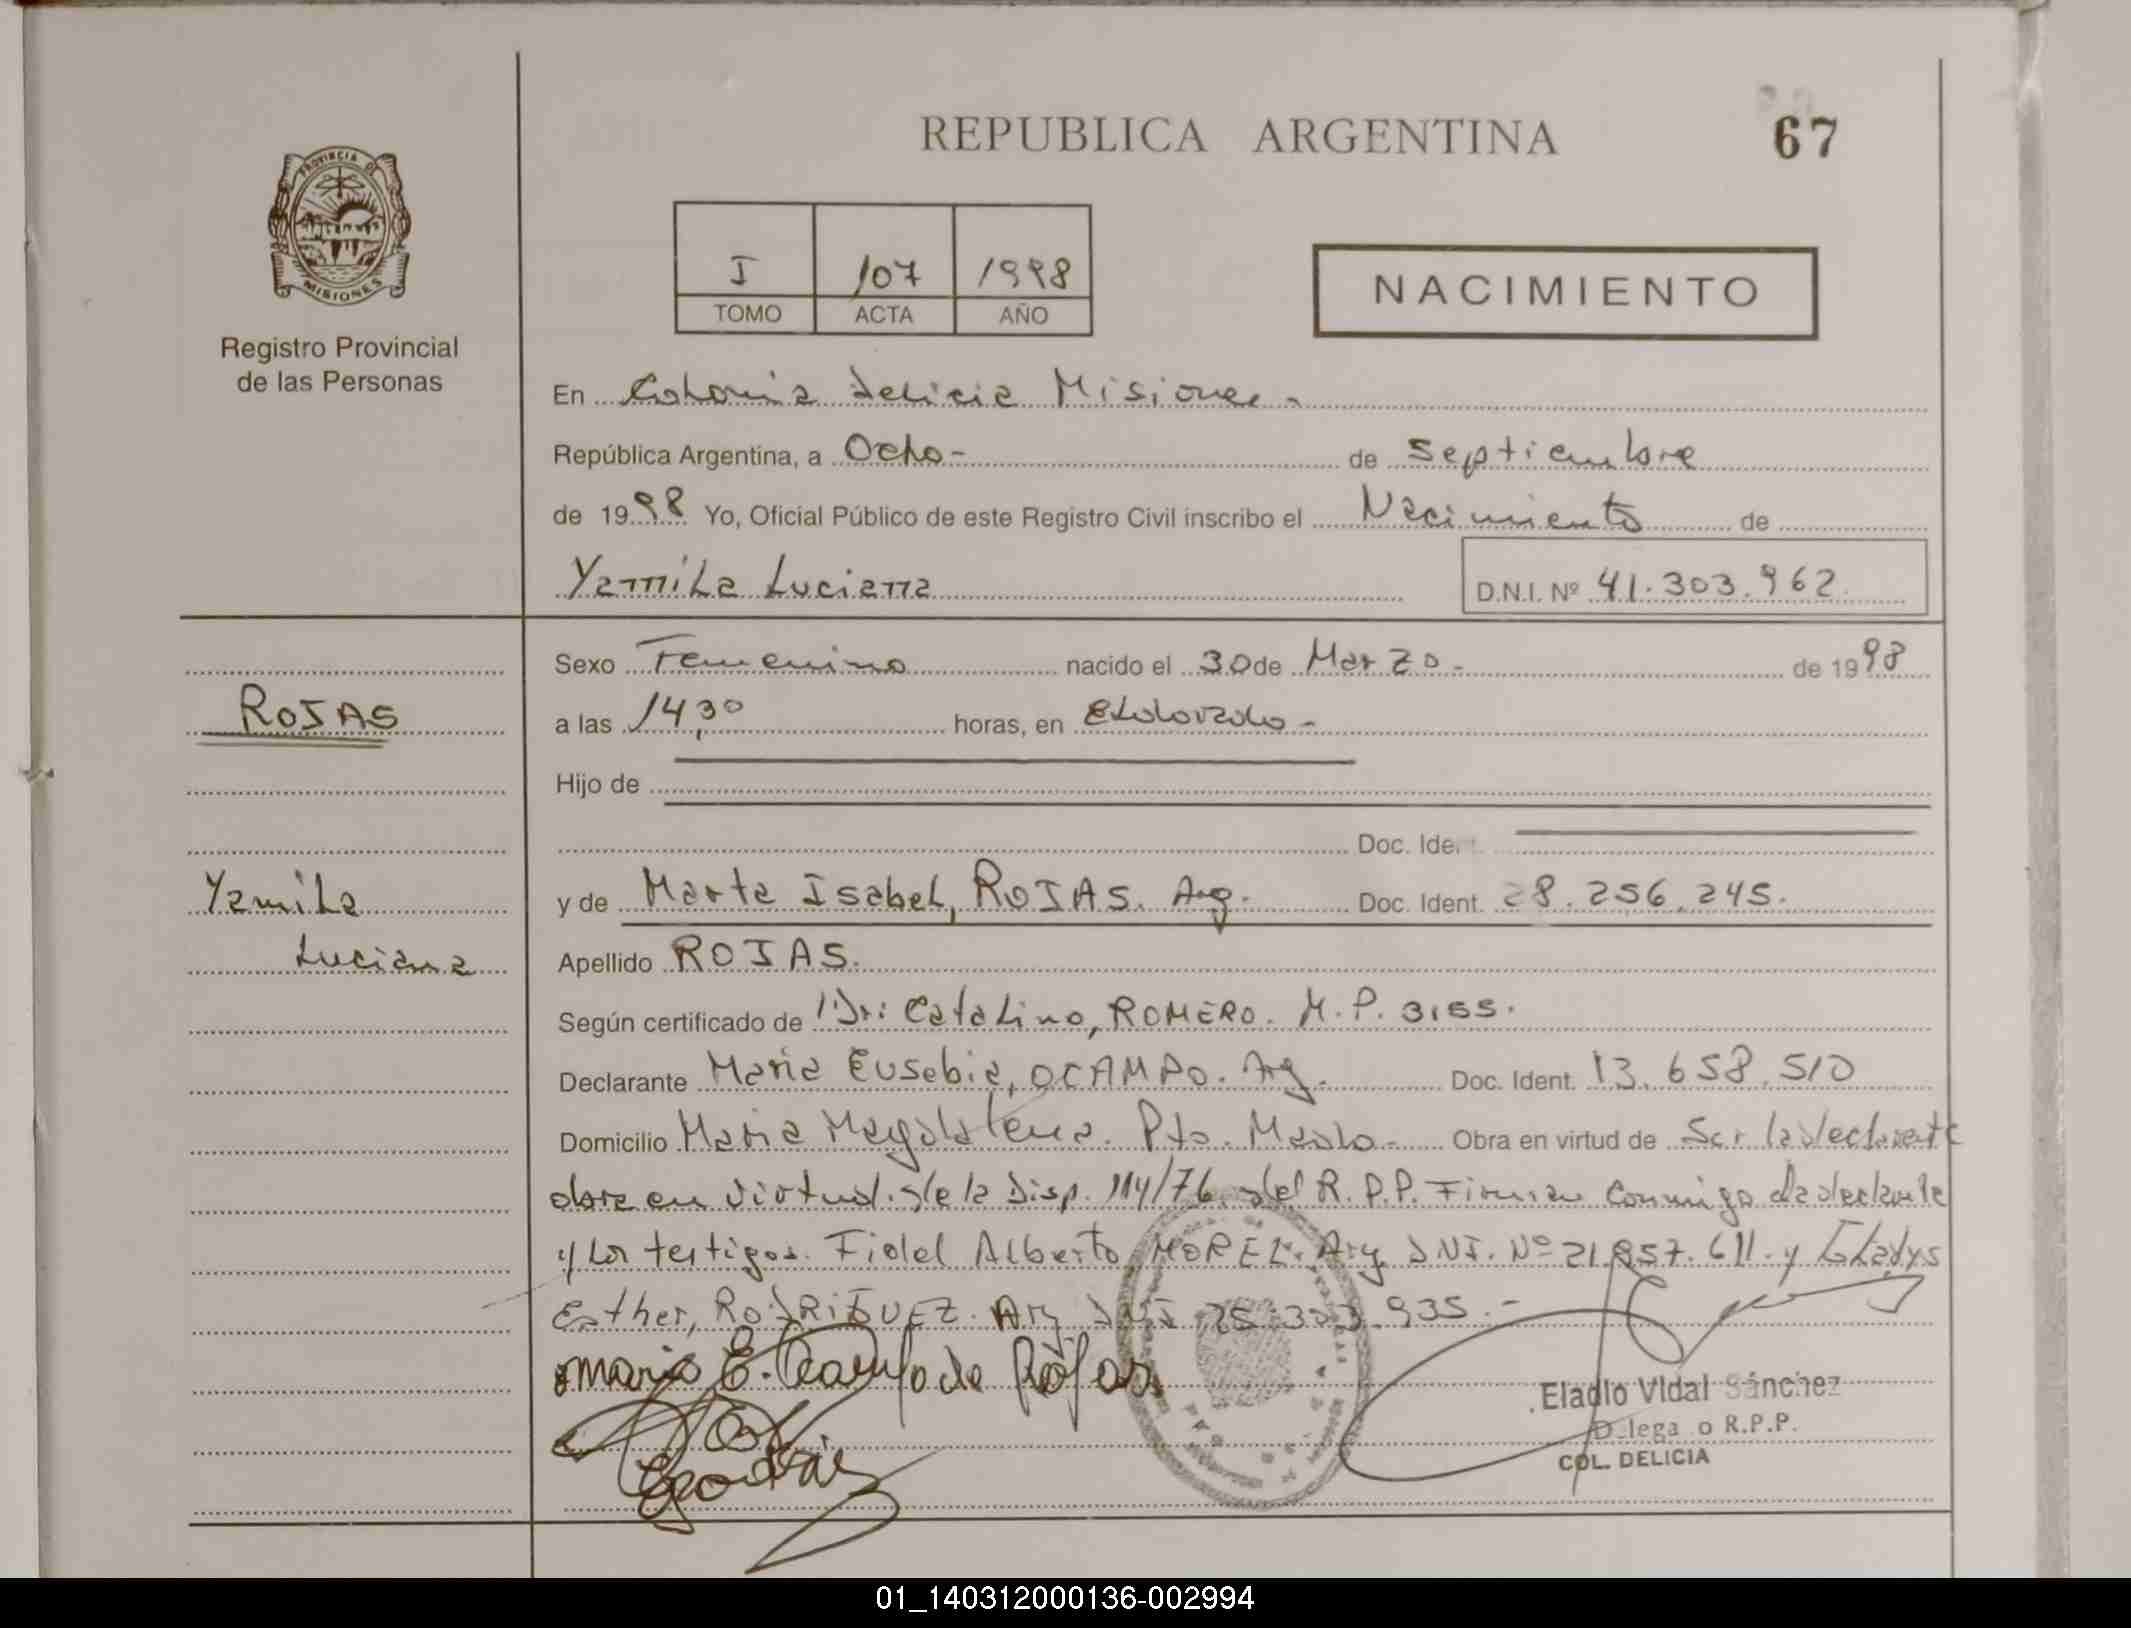 REPUBLICA ARGENTINA
67
PROVINCIA DE
MISIONES
Registro Provincial
de las Personas
I 107 1998
TOMO ACTA AÑO
NACIMIENTO
En Colonia Delicia Misiones -
República Argentina, a Ocho - de Septiembre
de 1998 Yo, Oficial Público de este Registro Civil inscribo el Nacimiento de
Yamila Luciana D.N.I. Nº 41.303.962
Sexo Femenino nacido el 30 de Marzo - de 1998
ROJAS
a las 14,30 horas, en Eldorado -
Hijo de
Doc. Ident.
Yamila
y de Marta Isabel, ROJAS. Arg. Doc. Ident. 28.256.245.
Luciana
Apellido ROJAS.
Según certificado de Dr: Catalino, ROMERO. M.P. 3155.
Declarante Maria Eusebia, OCAMPO. Arg. Doc. Ident. 13.658.510
Domicilio Maria Magdalena. Pto. Mado - Obra en virtud de Ser la declarante
obra en virtud de la Disp. 114/76 del R.P.P. Firman conmigo la declarante
y los testigos. Fidel Alberto MOREL. Arg DNI. Nº 21.857.611. y Gladys
Esther, RODRIGUEZ. Arg DNI 25.303.935. -
Maria E. Ocampo de Rojas
Eladio Vidal Sánchez
Delegado R.P.P.
COL. DELICIA
01_140312000136-002994